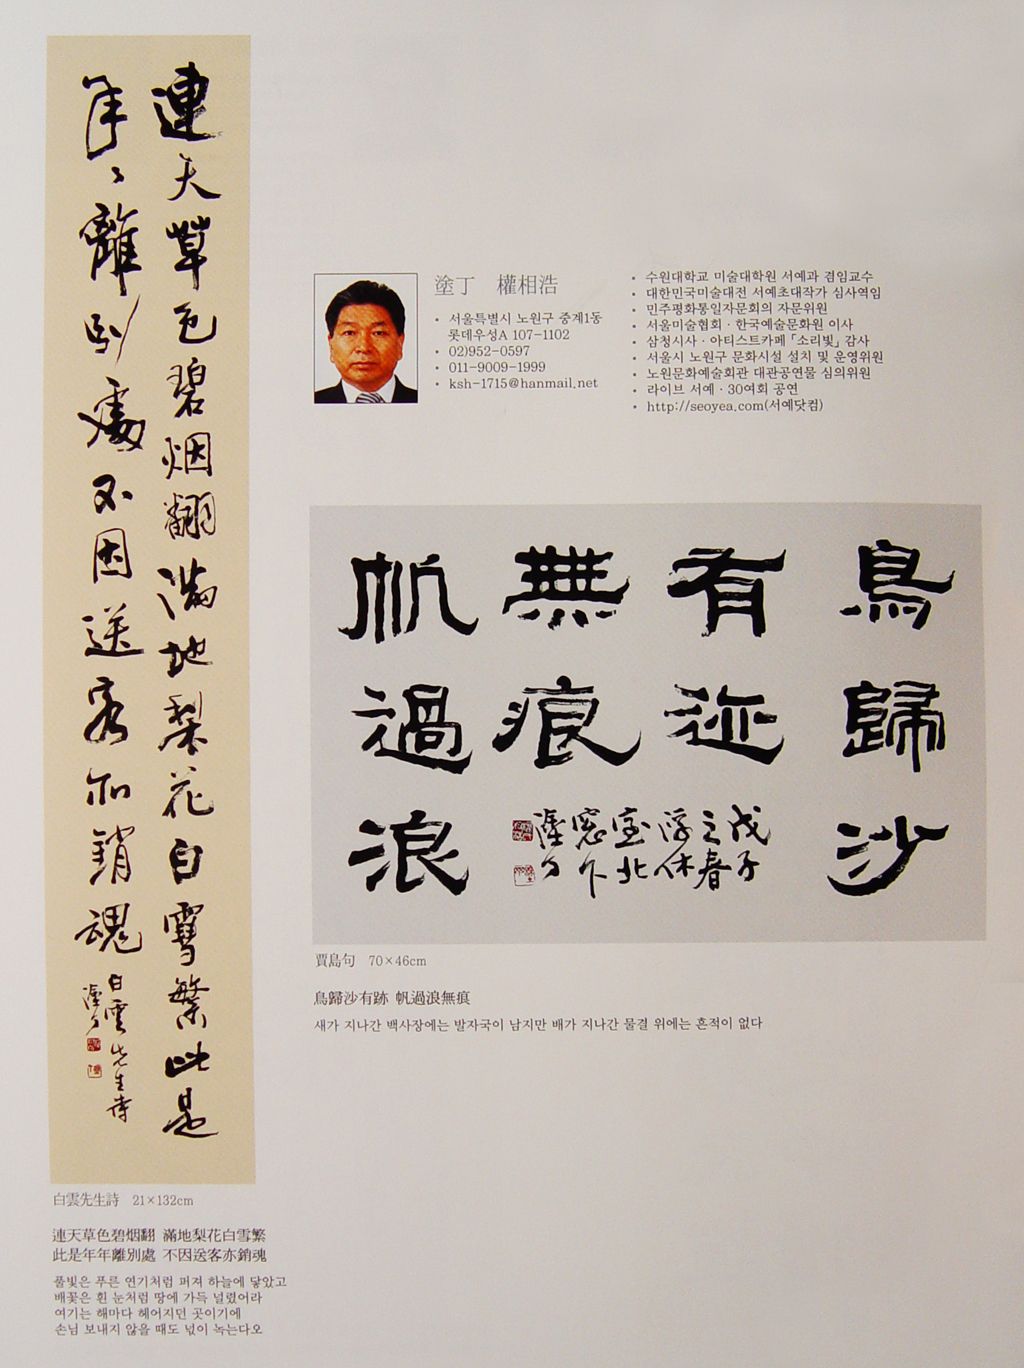 連天草色碧烟翻滿地梨花白雪繁此是
年々離別處不因送客亦銷魂
白雲先生詩
塗丁
塗丁 權相浩
• 서울특별시 노원구 중계1동
롯데우성A 107-1102
• 02)952-0597
• 011-9009-1999
• ksh-1715@hanmail.net
• 수원대학교 미술대학원 서예과 겸임교수
• 대한민국미술대전 서예초대작가 심사역임
• 민주평화통일자문회의 자문위원
• 서울미술협회 · 한국예술문화원 이사
• 삼청시사 · 아티스트카페 「소리빛」 감사
• 서울시 노원구 문화시설 설치 및 운영위원
• 노원문화예술회관 대관공연물 심의위원
• 라이브 서예 · 30여회 공연
• http://seoyea.com(서예닷컴)
鳥歸沙
有迹
無痕
帆過浪
戊子
之春
浮休
室北
窓下
塗丁
賈島句 70×46cm
鳥歸沙有跡 帆過浪無痕
새가 지나간 백사장에는 발자국이 남지만 배가 지나간 물결 위에는 흔적이 없다
白雲先生詩 21×132cm
連天草色碧烟翻 滿地梨花白雪繁
此是年年離別處 不因送客亦銷魂
풀빛은 푸른 연기처럼 퍼져 하늘에 닿았고
배꽃은 흰 눈처럼 땅에 가득 널렸어라
여기는 해마다 헤어지던 곳이기에
손님 보내지 않을 때도 넋이 녹는다오